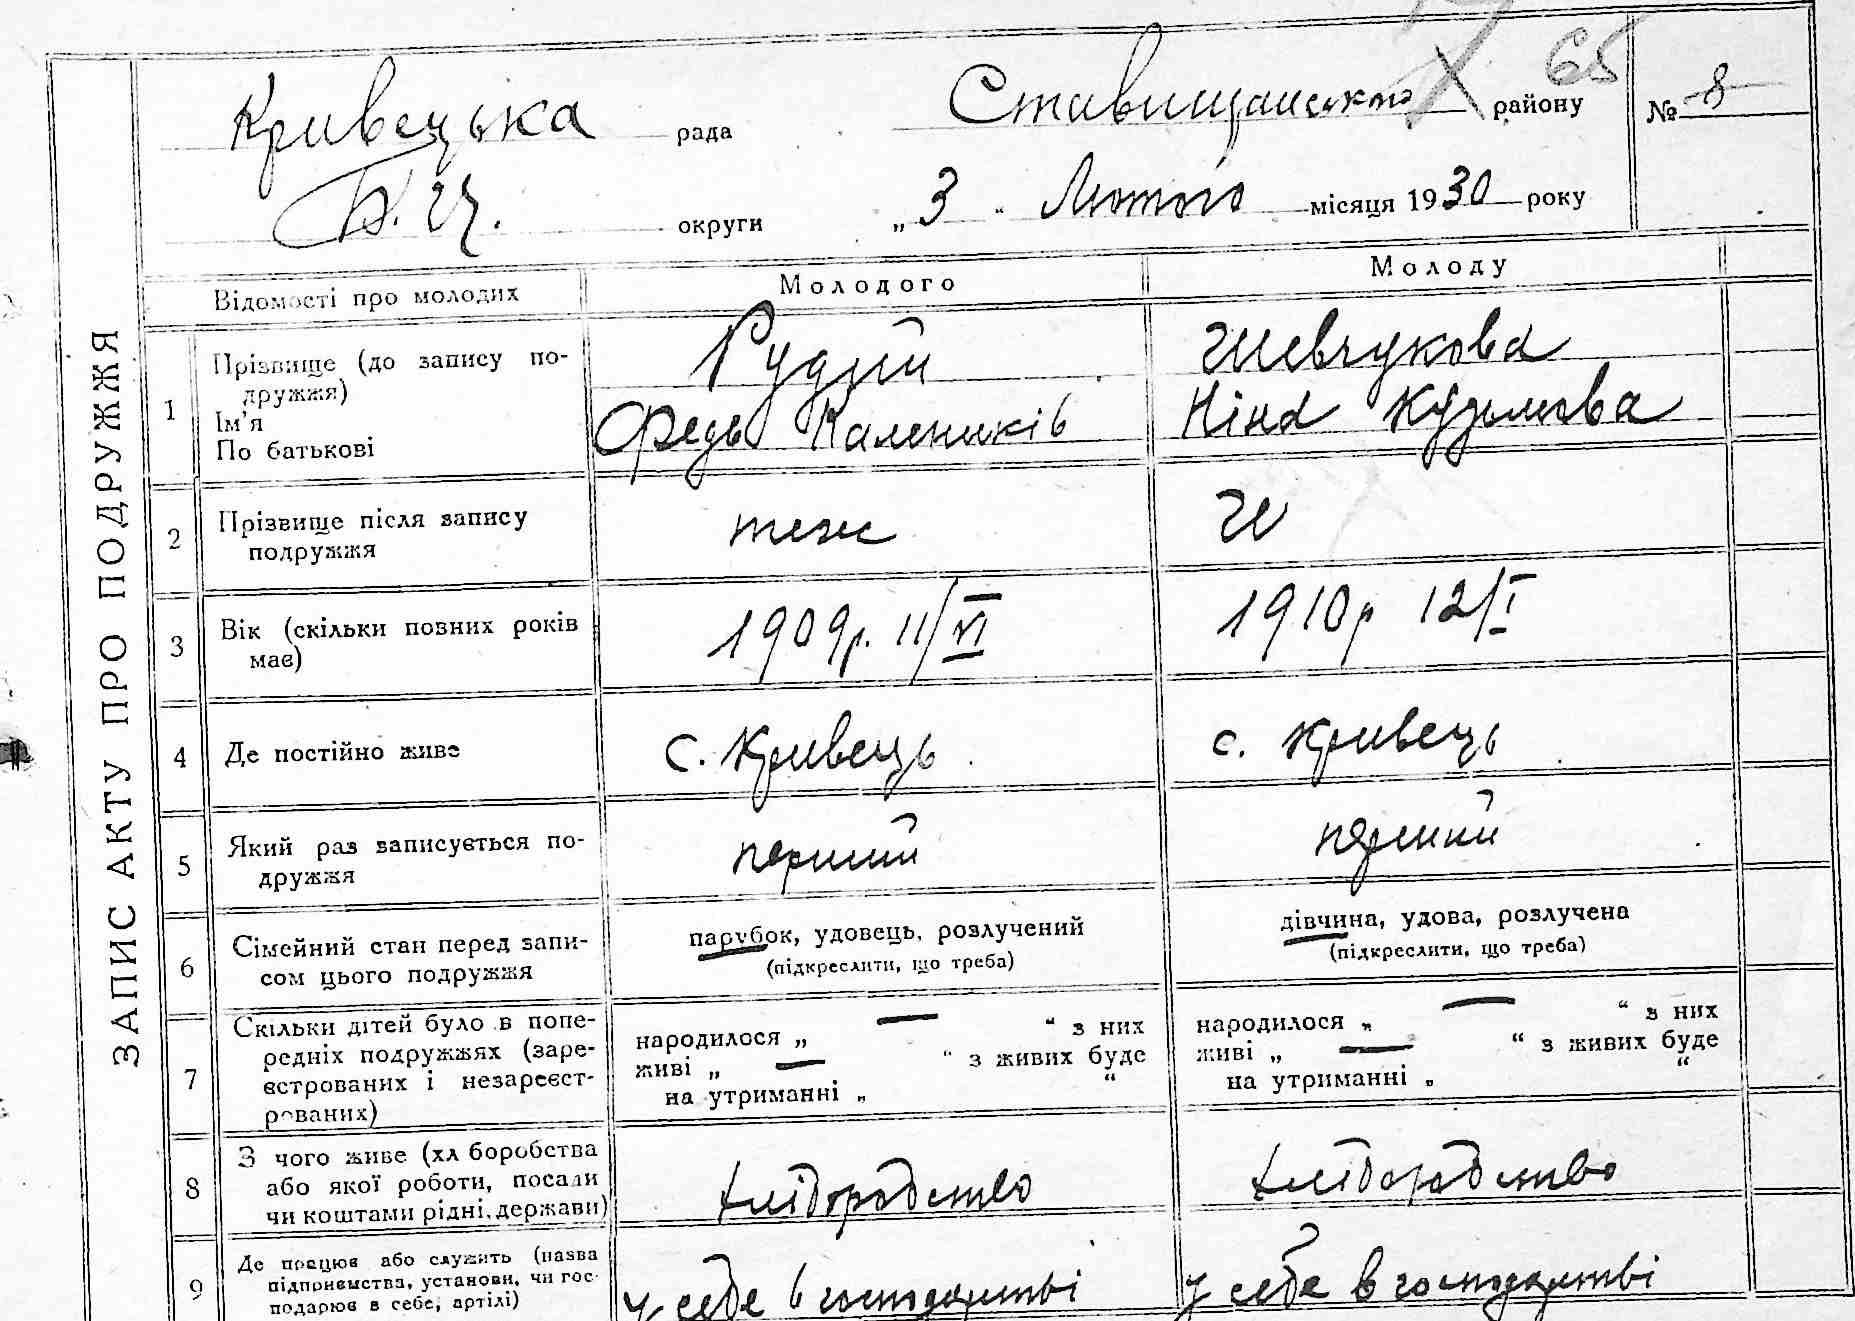 65
Кривецька рада Ставищанського району № 8
Б. Ц. округи „ 3 “ Лютого місяця 1930 року
ЗАПИС АКТУ ПРО ПОДРУЖЖЯ
Відомості про молодих Молодого Молоду
1 Прізвище (до запису по-
дружжя) Рудий Шевчукова
Ім'я
По батькові Федь Калеників Ніна Кузьмова
2 Прізвище після запису
подружжя теж Ш
3 Вік (скільки повних років
має) 1909р. 11/VI 1910р 12/I
4 Де постійно живе с. Кривець с. Кривець
5 Який раз записується по-
дружжя перший перший
6 Сімейний стан перед запи-
сом цього подружжя
парубок, удовець, розлучений
(підкреслити, що треба)
дівчина, удова, розлучена
(підкреслити, що треба)
7 Скільки дітей було в попе-
редніх подружжях (заре-
єстрованих і незареєст-
рованих)
народилося „ — “ з них
живі „ — “ з живих буде
на утриманні „ “
народилося „ — “ з них
живі „ — “ з живих буде
на утриманні „ “
8 З чого живе (хл боробства
або якої роботи, посади
чи коштами рідні, держави)
хліборобство хліборобство
9 Де працює або служить (назва
підприємства, установи, чи гос-
подарює в себе, артілі)
у себе в господарстві у себе в господарстві